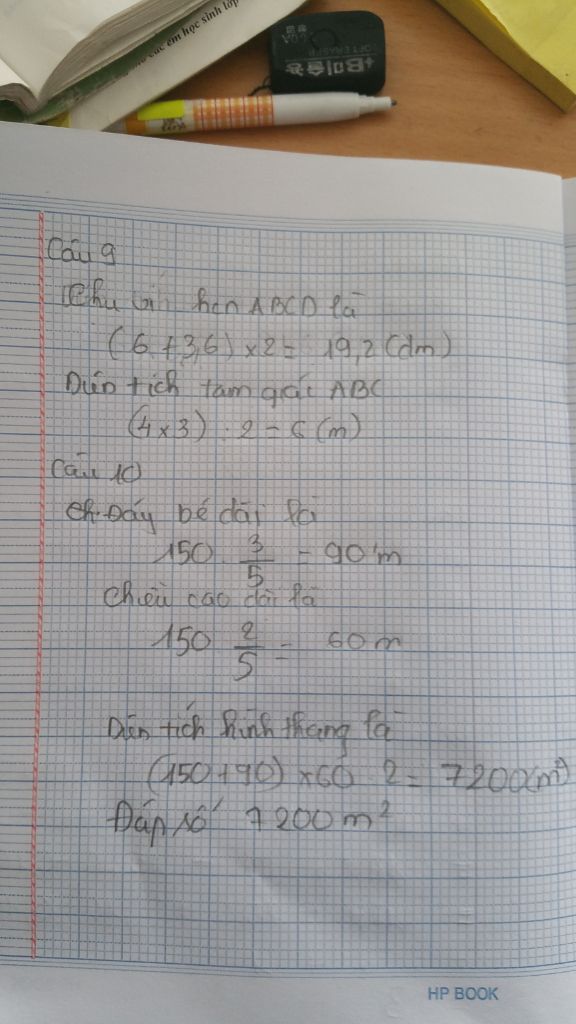 các em học sinh lớp
Câu 9
Chu vi hcn ABCD là
(6 + 3,6) × 2 = 19,2 (dm)
Diện tích tam giác ABC
(4 × 3) : 2 = 6 (m)
Câu 10
Đáy bé dài là
150 . 3/5 = 90 m
Chiều cao dài là
150 2/5 = 60 m
Diện tích hình thang là
(150 + 90) × 60 2 = 7200 (m²)
Đáp số 7200 m²
HP BOOK